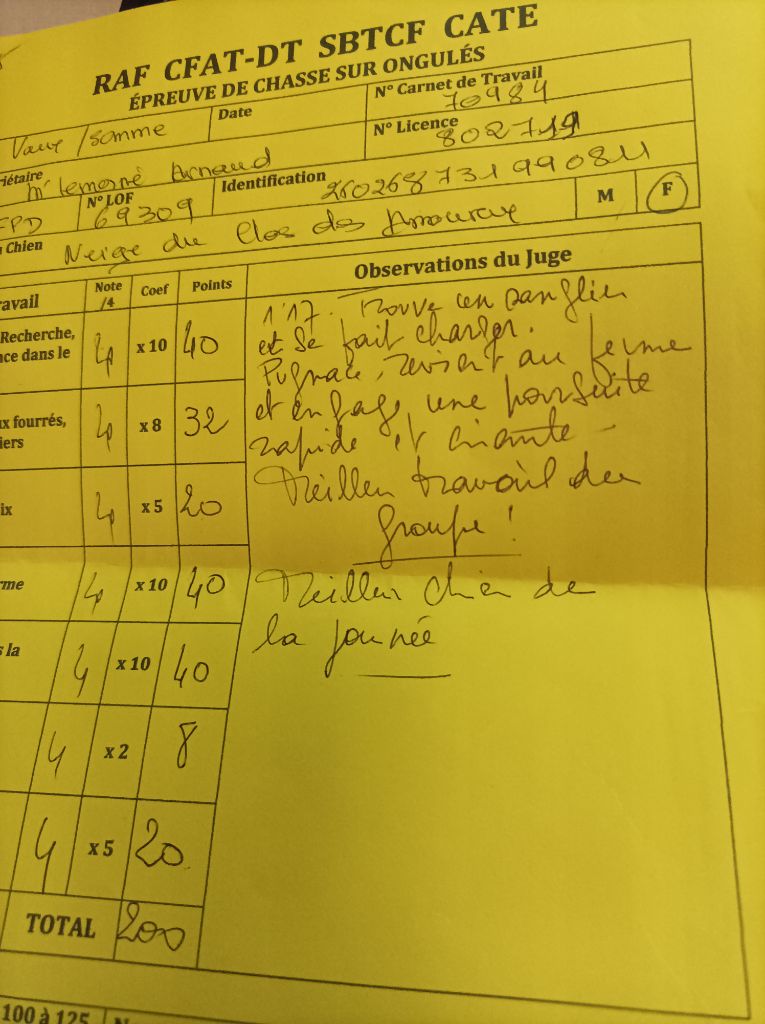 RAF CFAT-DT SBTCF CATE
ÉPREUVE DE CHASSE SUR ONGULÉS
Vaux/somme
Date
N° Carnet de Travail
70984
N° Licence
802719
riétaire
Mr Lemoiné Arnaud
N° LOF
69309
Identification
250268731990811
M
F
Chien
Neige du Clos des Amoureux
avail
Note
/4
Coef
Points
Observations du Juge
Recherche,
ce dans le
4
x 10
40
x fourrés,
iers
4
x 8
32
ix
4
x 5
20
rme
4
x 10
40
s la
4
x 10
40
4
x 2
8
4
x 5
20
TOTAL
200
1'17. Trouve un sanglier
et se fait charger.
Pugnace, revient au ferme
et engage une poursuite
rapide et criante -
Meilleur travail du
groupe !
Meilleur chien de
la journée
100 à 125